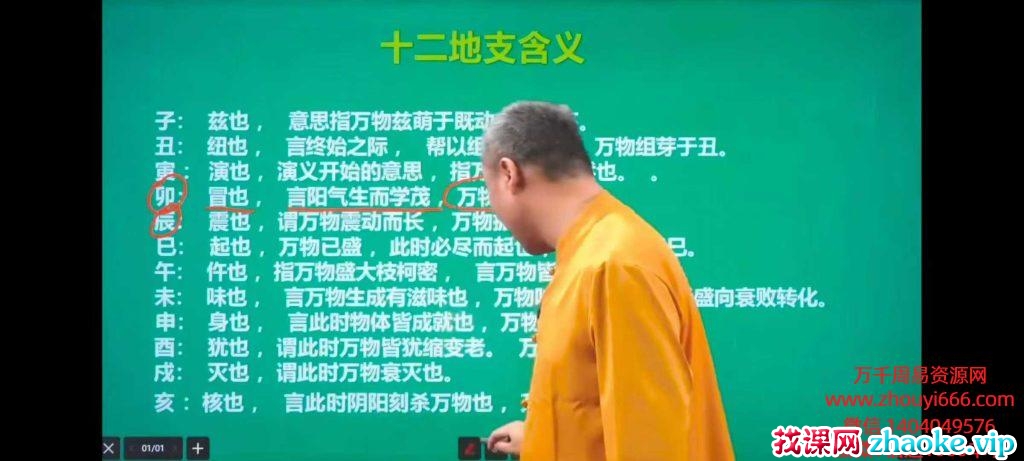 十二地支含义
子： 兹也， 意思指万物兹萌于既动
丑： 纽也， 言终始之际， 帮以 万物组芽于丑。
寅： 演也，演义开始的意思， 指 也。 。
卯： 冒也， 言阳气生而学茂， 万物
辰： 震也，谓万物震动而长， 万物
巳： 起也，万物已盛，此时必尽而起也 巳。
午： 仵也，指万物盛大枝柯密， 言万物皆
未： 味也， 言万物生成有滋味也，万物 盛向衰败转化。
申： 身也， 言此时物体皆成就也，万物
酉： 犹也，谓此时万物皆犹缩变老。 万
戌： 灭也，谓此时万物衰灭也。
亥： 核也， 言此时阴阳刻杀万物也，
01/01
万千周易资源网
www.zhouyi666.com
微信 1404049576
找课网 zhaoke.vip